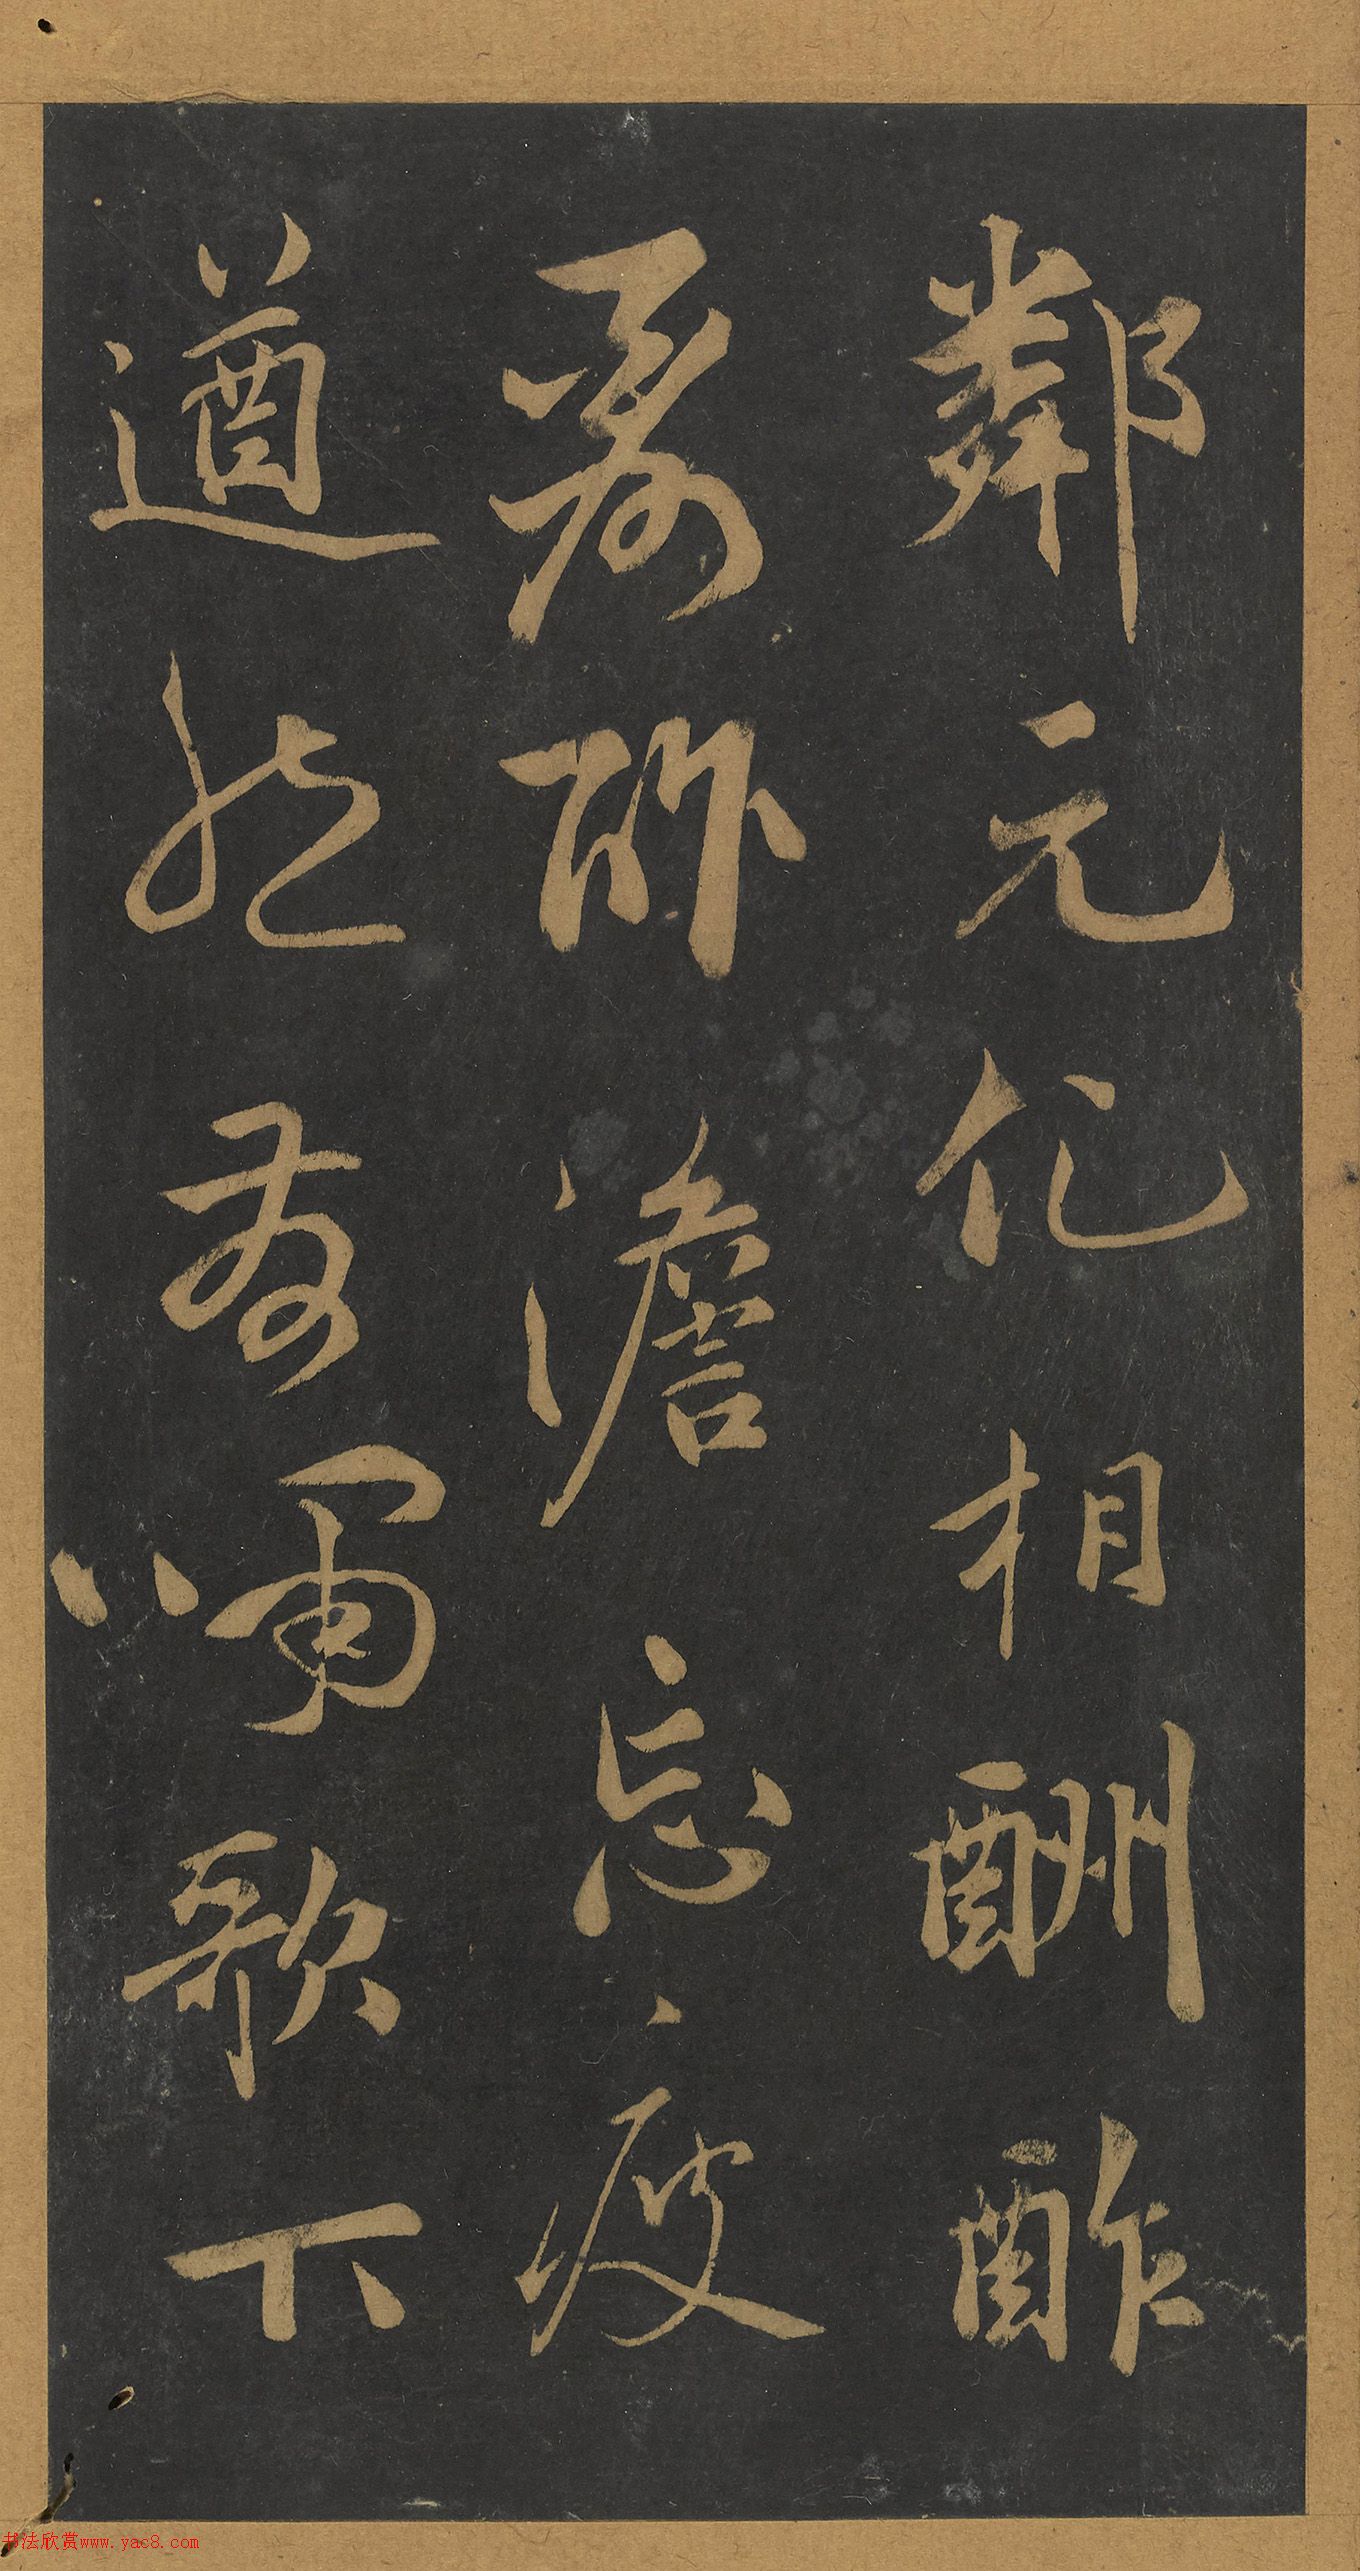 鄰元化相酬酢
所澹忘疲
遒嘯歌下
书法欣赏www.yac8.com